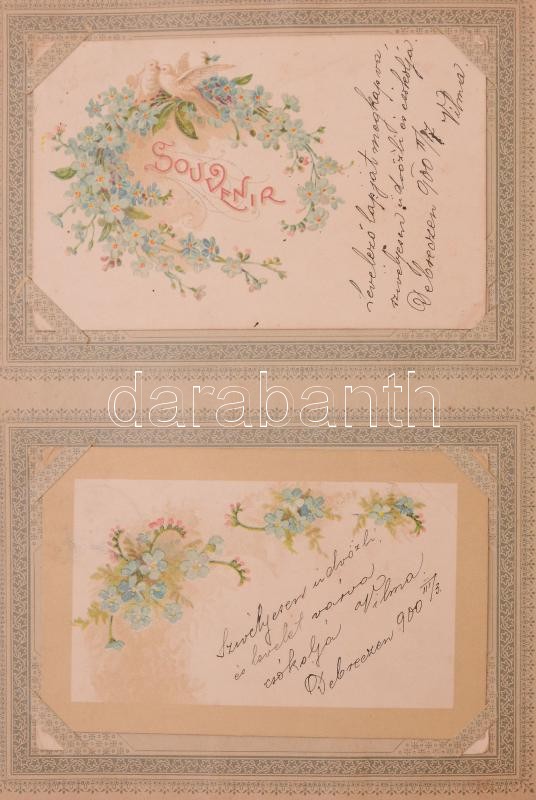 SOUVENIR
Levelező lapját megkapva,
szivélyesen üdvözli és csókolja
Debreczen 900 III/7 Vilma.
darabanth
Szivélyesen üdvözli,
és levelét várva
csókolja Vilma.
Debreczen 900 III/3.